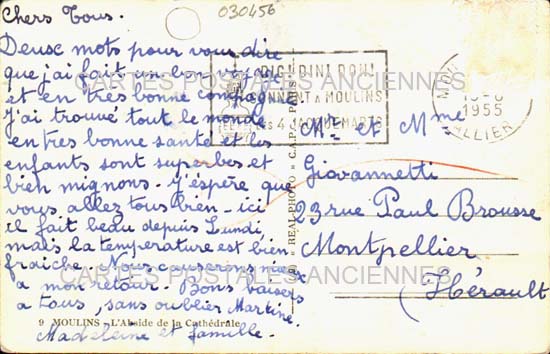 Chers Tous.
030456
Deux mots pour vous dire
que j'ai fait un bon voyage
et en très bonne compagnie
J'ai trouvé tout le monde
en très bonne santé et les
enfants sont superbes et
bien mignons. J'espère que
vous allez tous bien - ici
il fait beau depuis Lundi,
mais la température est bien
fraiche. Nous causerons mieux
a mon retour. Bons baisers
a tous, sans oublier Martine.
Madeleine et famille.
9 MOULINS - L'Abside de la Cathédrale
REAL-PHOTO
C.A.P.
PARIS
A MOULINS
1955
ALLIER
Mr et Mme
Giovannetti
23 rue Paul Brousse
Montpellier
(Hérault
CARTES POSTALES ANCIENNES
CARTES POSTALES ANCIENNES